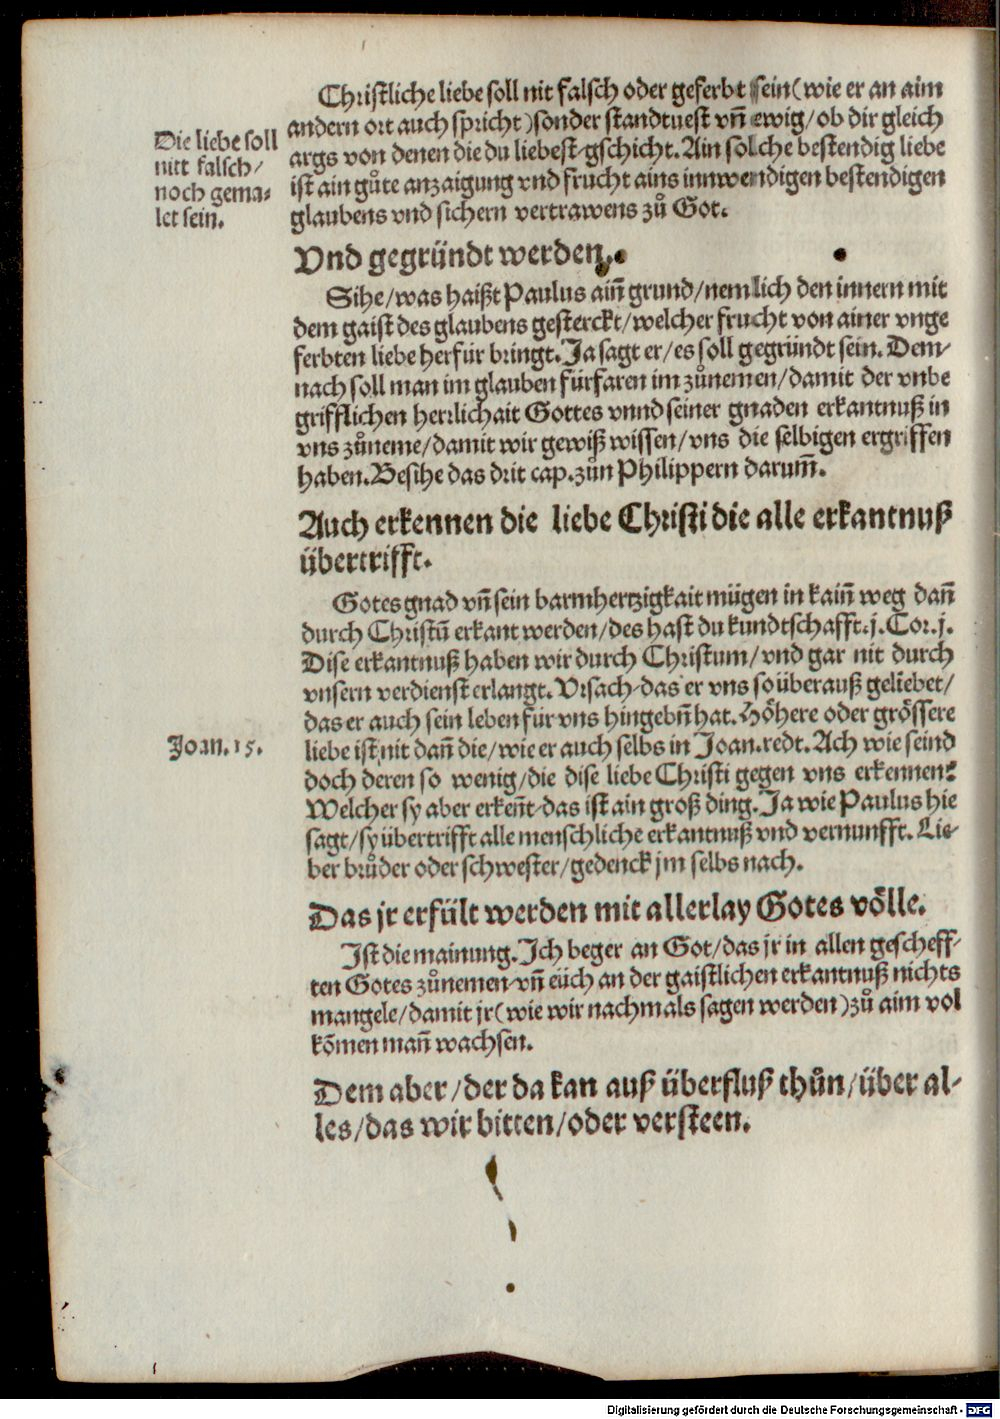 Christliche liebe soll nit falsch oder geferbt sein(wie er an aim
andern ort auch spricht)sonder standtuest vñ ewig/ob dir gleich
args von denen die du liebest gschicht. Ain solche bestendig liebe
ist ain gůte anzaigung vnd frucht ains innwendigen bestendigen
glaubens vnd sichern vertrawens zů Got.
Die liebe soll
nitt falsch/
noch gema-
let sein.
Vnd gegründt werden.
Sihe/was haißt Paulus aiñ grund/nemlich den innern mit
dem gaist des glaubens gesterckt/welcher frucht von ainer vnge
ferbten liebe herfür bringt. Ja sagt er/es soll gegründt sein. Dem-
nach soll man im glauben fürfaren im zůnemen/damit der vnbe
grifflichen herrlichait Gottes vnnd seiner gnaden erkantnuß in
vns zůneme/damit wir gewiß wissen/vns die selbigen ergriffen
haben. Besihe das drit cap. zůn Philippern darum̃.
Auch erkennen die liebe Christi die alle erkantnuß
übertrifft.
Gotes gnad vñ sein barmhertzigkait mügen in kaiñ weg dañ
durch Christũ erkant werden/des hast du kundtschafft.j.Cor.j.
Dise erkantnuß haben wir durch Christum/vnd gar nit durch
vnsern verdienst erlangt. Vrsach das er vns so überauß geliebet/
das er auch sein leben für vns hingebñ hat. Höhere oder grössere
liebe ist nit dañ die/wie er auch selbs in Joan. redt. Ach wie seind
Joan.15.
doch deren so wenig/die dise liebe Christi gegen vns erkennen:
Welcher sy aber erkeñt das ist ain groß ding. Ja wie Paulus hie
sagt/sy übertrifft alle menschliche erkantnuß vnd vernunfft. Lie-
ber brůder oder schwester/gedenck jm selbs nach.
Das jr erfült werden mit allerlay Gotes völle.
Ist die mainung. Ich beger an Got/das jr in allen gescheff-
ten Gotes zůnemen vñ eüch an der gaistlichen erkantnuß nichts
mangele/damit jr(wie wir nachmals sagen werden)zů aim vol
kõmen mañ wachsen.
Dem aber/der da kan auß überfluß thůn/über al-
les/das wir bitten/oder versteen.
Digitalisierung gefördert durch die Deutsche Forschungsgemeinschaft - DFG